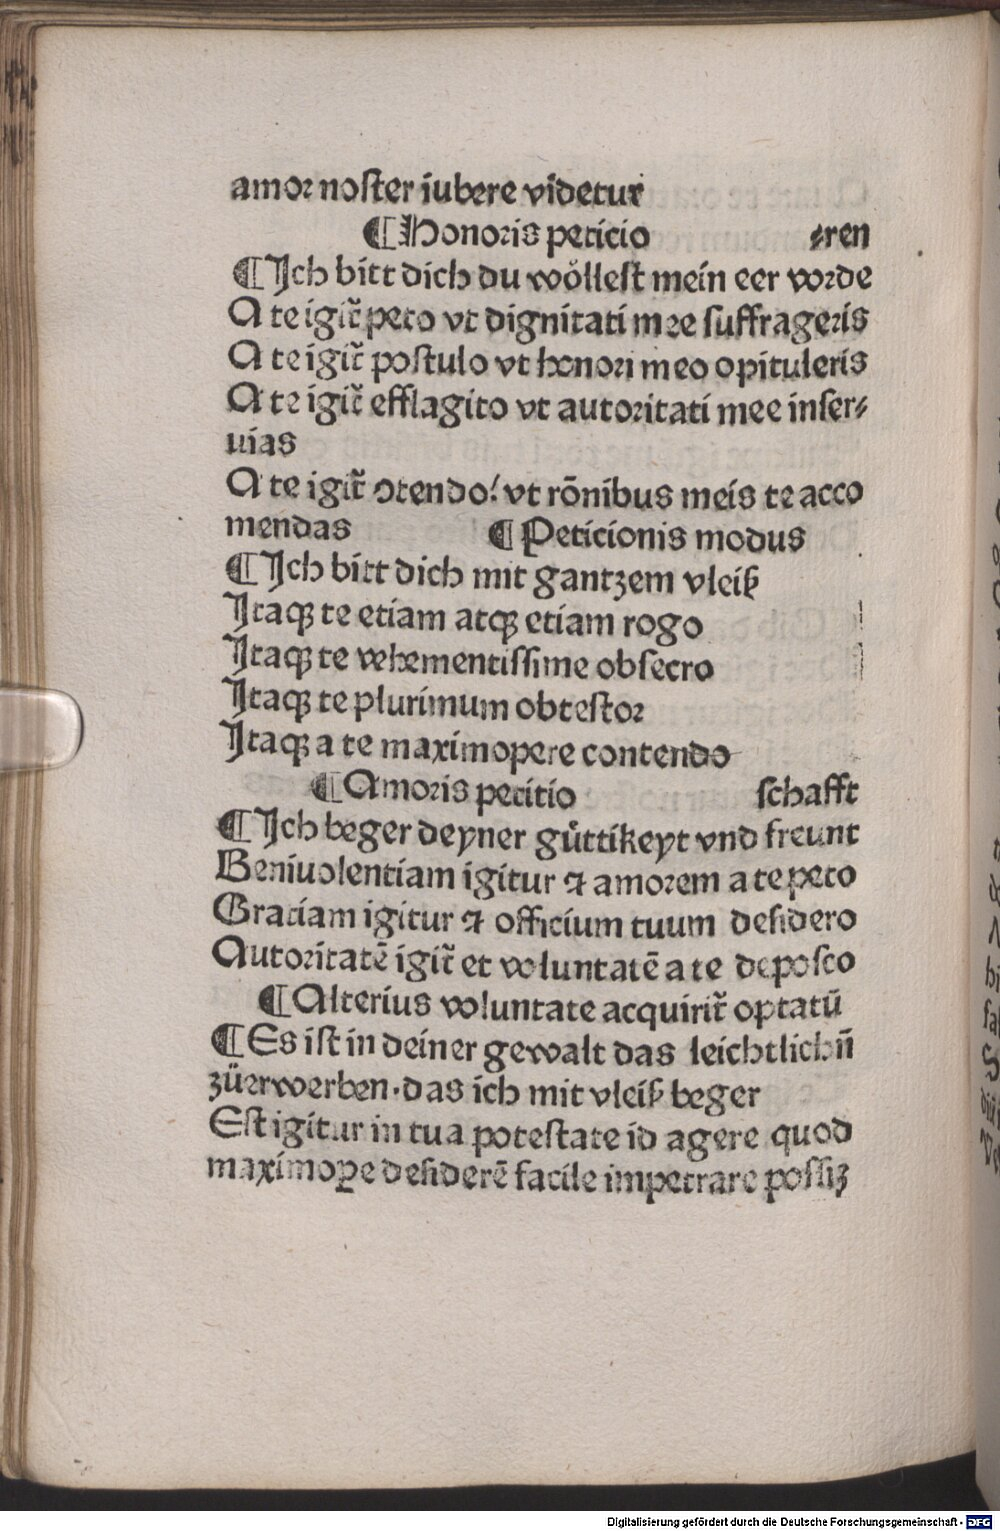 amor noſter iubere videtur
¶Honoris peticio ⸗ren
¶Ich bitt dich du woͤlleſt mein eer vorde
A te igit̃ peto vt dignitati mee ſuffrageris
A te igit̃ poſtulo vt honori meo opituleris
A te igit̃ efflagito vt autoritati mee inſer⸗
uias
A te igit̃ ↄtendo/ vt rōnibus meis te acco
mendas ¶Peticionis modus
¶Ich bitt dich mit gantzem vleiß
Itaqꝫ te etiam atqꝫ etiam rogo
Itaqꝫ te vehementiſſime obſecro
Itaqꝫ te plurimum obteſtor
Itaqꝫ a te maximopere contendo
¶Amoris petitio ſchafft
¶Ich beger deyner guͤttikeyt vnd freunt
Beniuolentiam igitur ⁊ amorem a te peto
Graciam igitur ⁊ officium tuum deſidero
Autoritatē igit̃ et voluntatē a te depoſco
¶Alterius voluntate acquirit̃ optatū
¶Es iſt in deiner gewalt das leichtlich ñ
zuͤerwerben·das ich mit vleiß beger
Eſt igitur in tua poteſtate id agere quod
maximoꝑe deſiderē facile impetrare poſſiꝫ
Digitalisierung gefördert durch die Deutsche Forschungsgemeinschaft - DFG